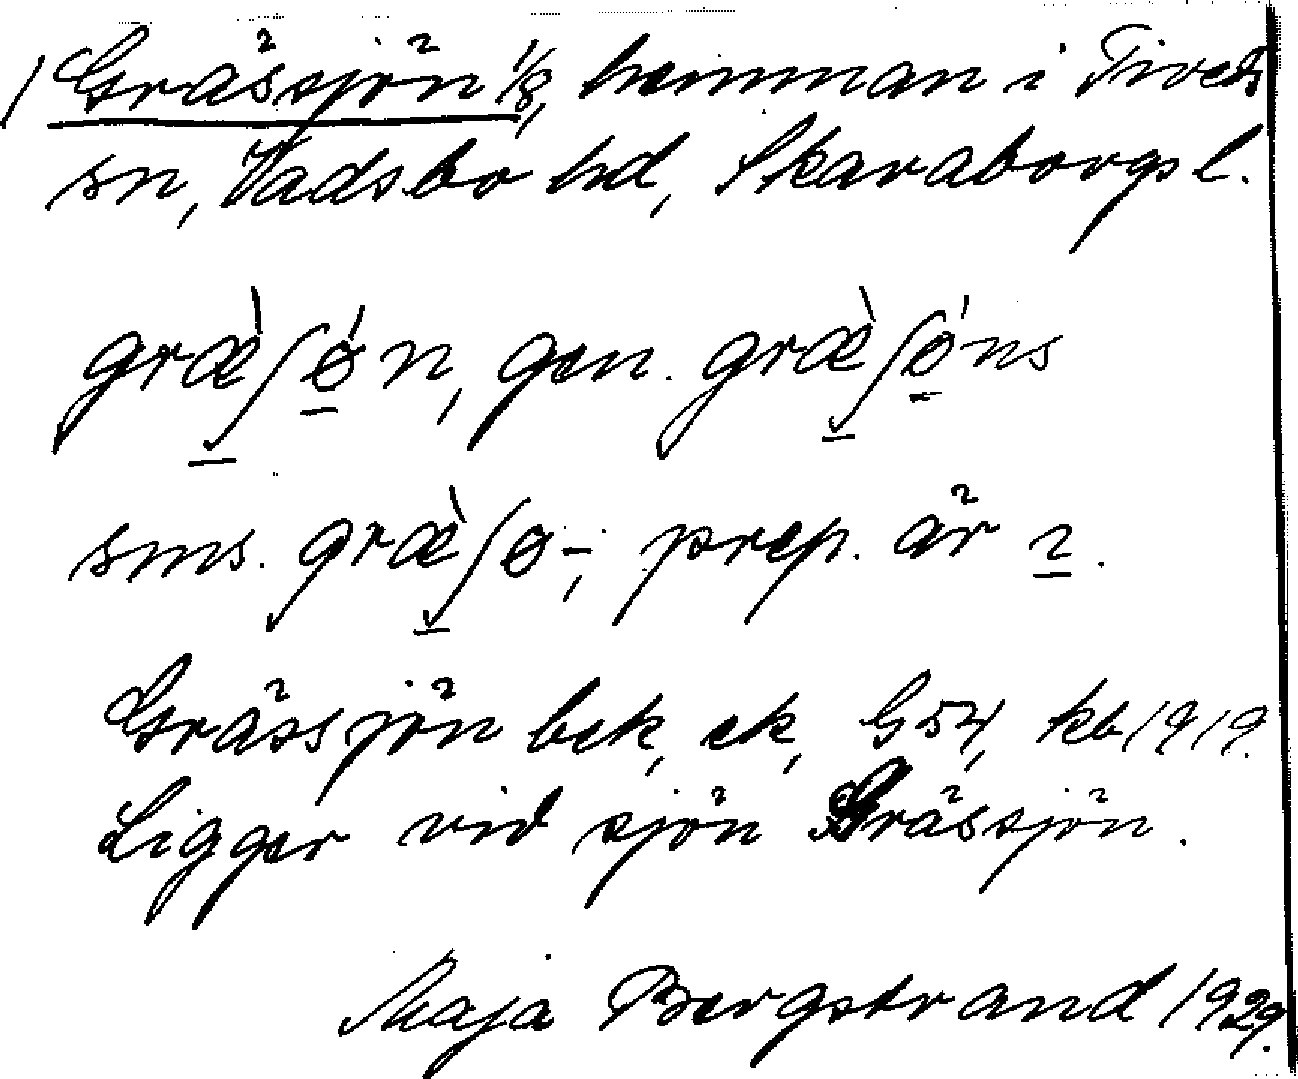 1 Gräsjön 1/8, hemman i Tiveds
sn, Vadsbo hd, Skaraborgs l.
græ̀ʃǿn, gen. græ̀ʃǿns
sms. græ̀ʃø-, prep. är ı.
Grässjön bek, ek, G 54, kb 1919.
Ligger vid sjön Grässjön.
Maja Bergstrand 1929.